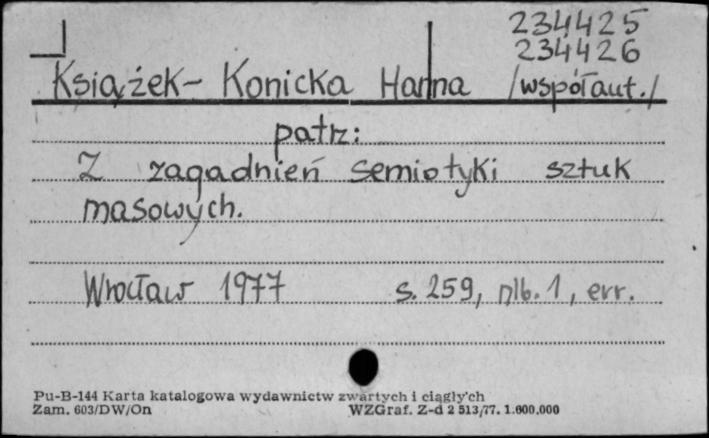 234425
234426
Książek- Konicka Hanna /współaut./
patrz:
Z zagadnień semiotyki sztuk
masowych.
Wrocław 1977 s. 259, nlb. 1, err.
Pu-B-144 Karta katalogowa wydawnictw zwartych i ciągłych
Zam. 603/DW/On WZGraf. Z-d 2 513/77. 1.600.000